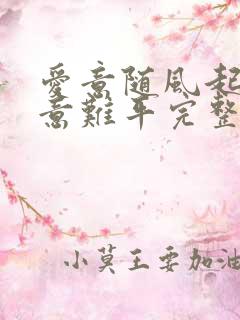 愛意随風起
意難平完整
小莫王要加油